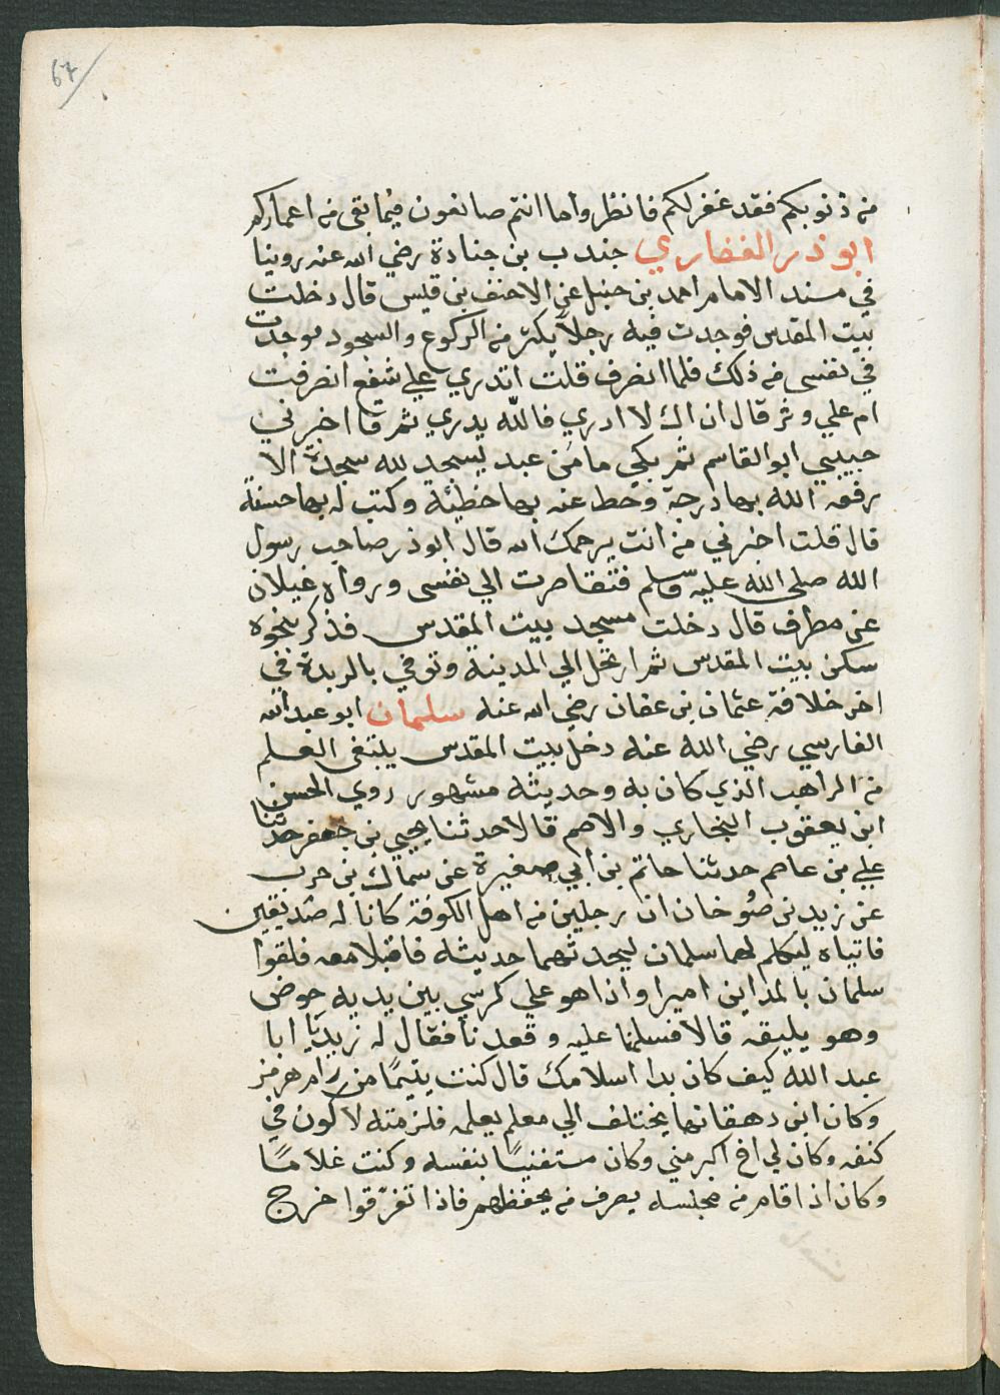 67
من ذنوبكم فقد غفر لكم فانظروا ما انتم صانعون فيما بقي من اعماركم
ابو ذر الغفاري جندب بن جنادة رضي الله عنه روينا
في مسند الامام احمد بن حنبل عن الاحنف بن قيس قال دخلت
بيت المقدس فوجدت فيه رجلاً يكثر من الركوع والسجود فوجدت
في نفسى من ذلك فلما انصرف قلت اتدري علي شفع انصرفت
ام علي وتر قال ان اك لا ادري فالله يدري ثم قال اخبرني
حبيبي ابو القاسم ثم بكي ما من عبد يسجد لله سجدة الا
رفعه الله بها درجة وحط عنه بها خطيئة وكتب له بها حسنة
قال قلت اخبرني من انت يرحمك الله قال ابو ذر صاحب رسول
الله صلي الله عليه وسلم فتقاصرت الي نفسى ورواه غيلان
عن مطرف قال دخلت مسجد بيت المقدس فذكر نحوه
سكن بيت المقدس ثم ارتحل الي المدينة وتوفي بالربدة في
اخر خلافة عثمان بن عفان رضي الله عنه سلمان ابو عبد الله
الفارسي رضي الله عنه دخل بيت المقدس يبتغى العلم
من الراهب الذي كان به وحديثه مشهور روي الحسن
ابن يعقوب البخاري والاصم قالا حدثنا يحيي بن جعفر حدثنا
علي بن عاصم حدثنا حاتم بن ابي صغيرة عن سماك بن حرب
عن زيد بن صُوخان ان رجلين من اهل الكوفة كانا له صديقين
فاتياه ليكلم لهما سلمان ليحدثهما حديثه فاقبلا معه فلقوا
سلمان بالمداين اميرا واذا هو علي كرسي بين يديه خوص
وهو يليقه قالا فسلمنا عليه وقعدنا فقال له زيد يا ابا
عبد الله كيف كان بدا اسلامك قال كنت يتيمًا من رام هرمز
وكان ابن دهقانها يختلف الي معلم يعلمه فلزمته لاكون في
كنفه وكان لي اخ اكبر مني وكان مستغنيًا بنفسه وكنت غلامًا
وكان اذا قام من مجلسه يصرف من يحفظهم فاذا تفرّقوا خرج